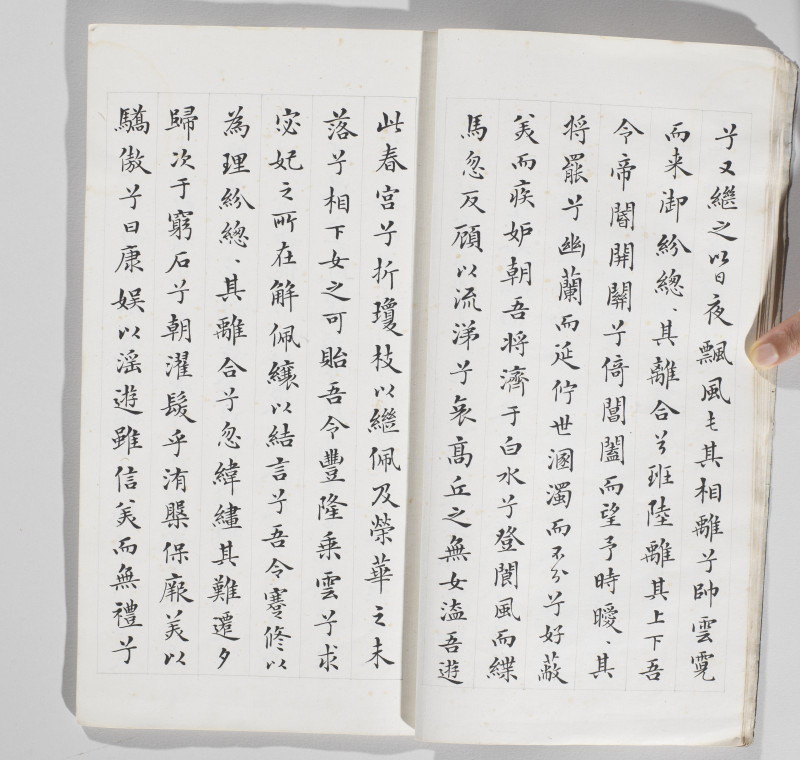 兮又繼之以日夜飄風屯其相離兮帥雲霓
而来御紛總丶其離合兮班陸離其上下吾
令帝閽開關兮倚閶闔而望予時曖丶其
将罷兮幽蘭而延佇世溷濁而不分兮好蔽
美而疾妒朝吾将濟于白水兮登閬風而緤
馬忽反顧以流涕兮哀高丘之無女溘吾遊
此春宮兮折瓊枝以繼佩及榮華之未
落兮相下女之可貽吾令豐隆乗雲兮求
宓妃之所在解佩纕以結言兮吾令蹇修以
為理紛總丶其離合兮忽緯繣其難遷夕
歸次于窮石兮朝濯髮乎洧槃保厥美以
驕傲兮日康娱以淫遊雖信美而無禮兮